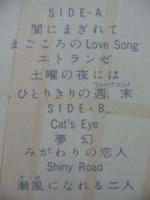 SIDE・A
闇にまぎれて
まごころのLove Song
エトランゼ
土曜の夜には
ひとりきりの週末
ウィークエンド
SIDE・B
Cat's Eye
夢幻
みがわりの恋人
Shiny Road
潮風になれる二人